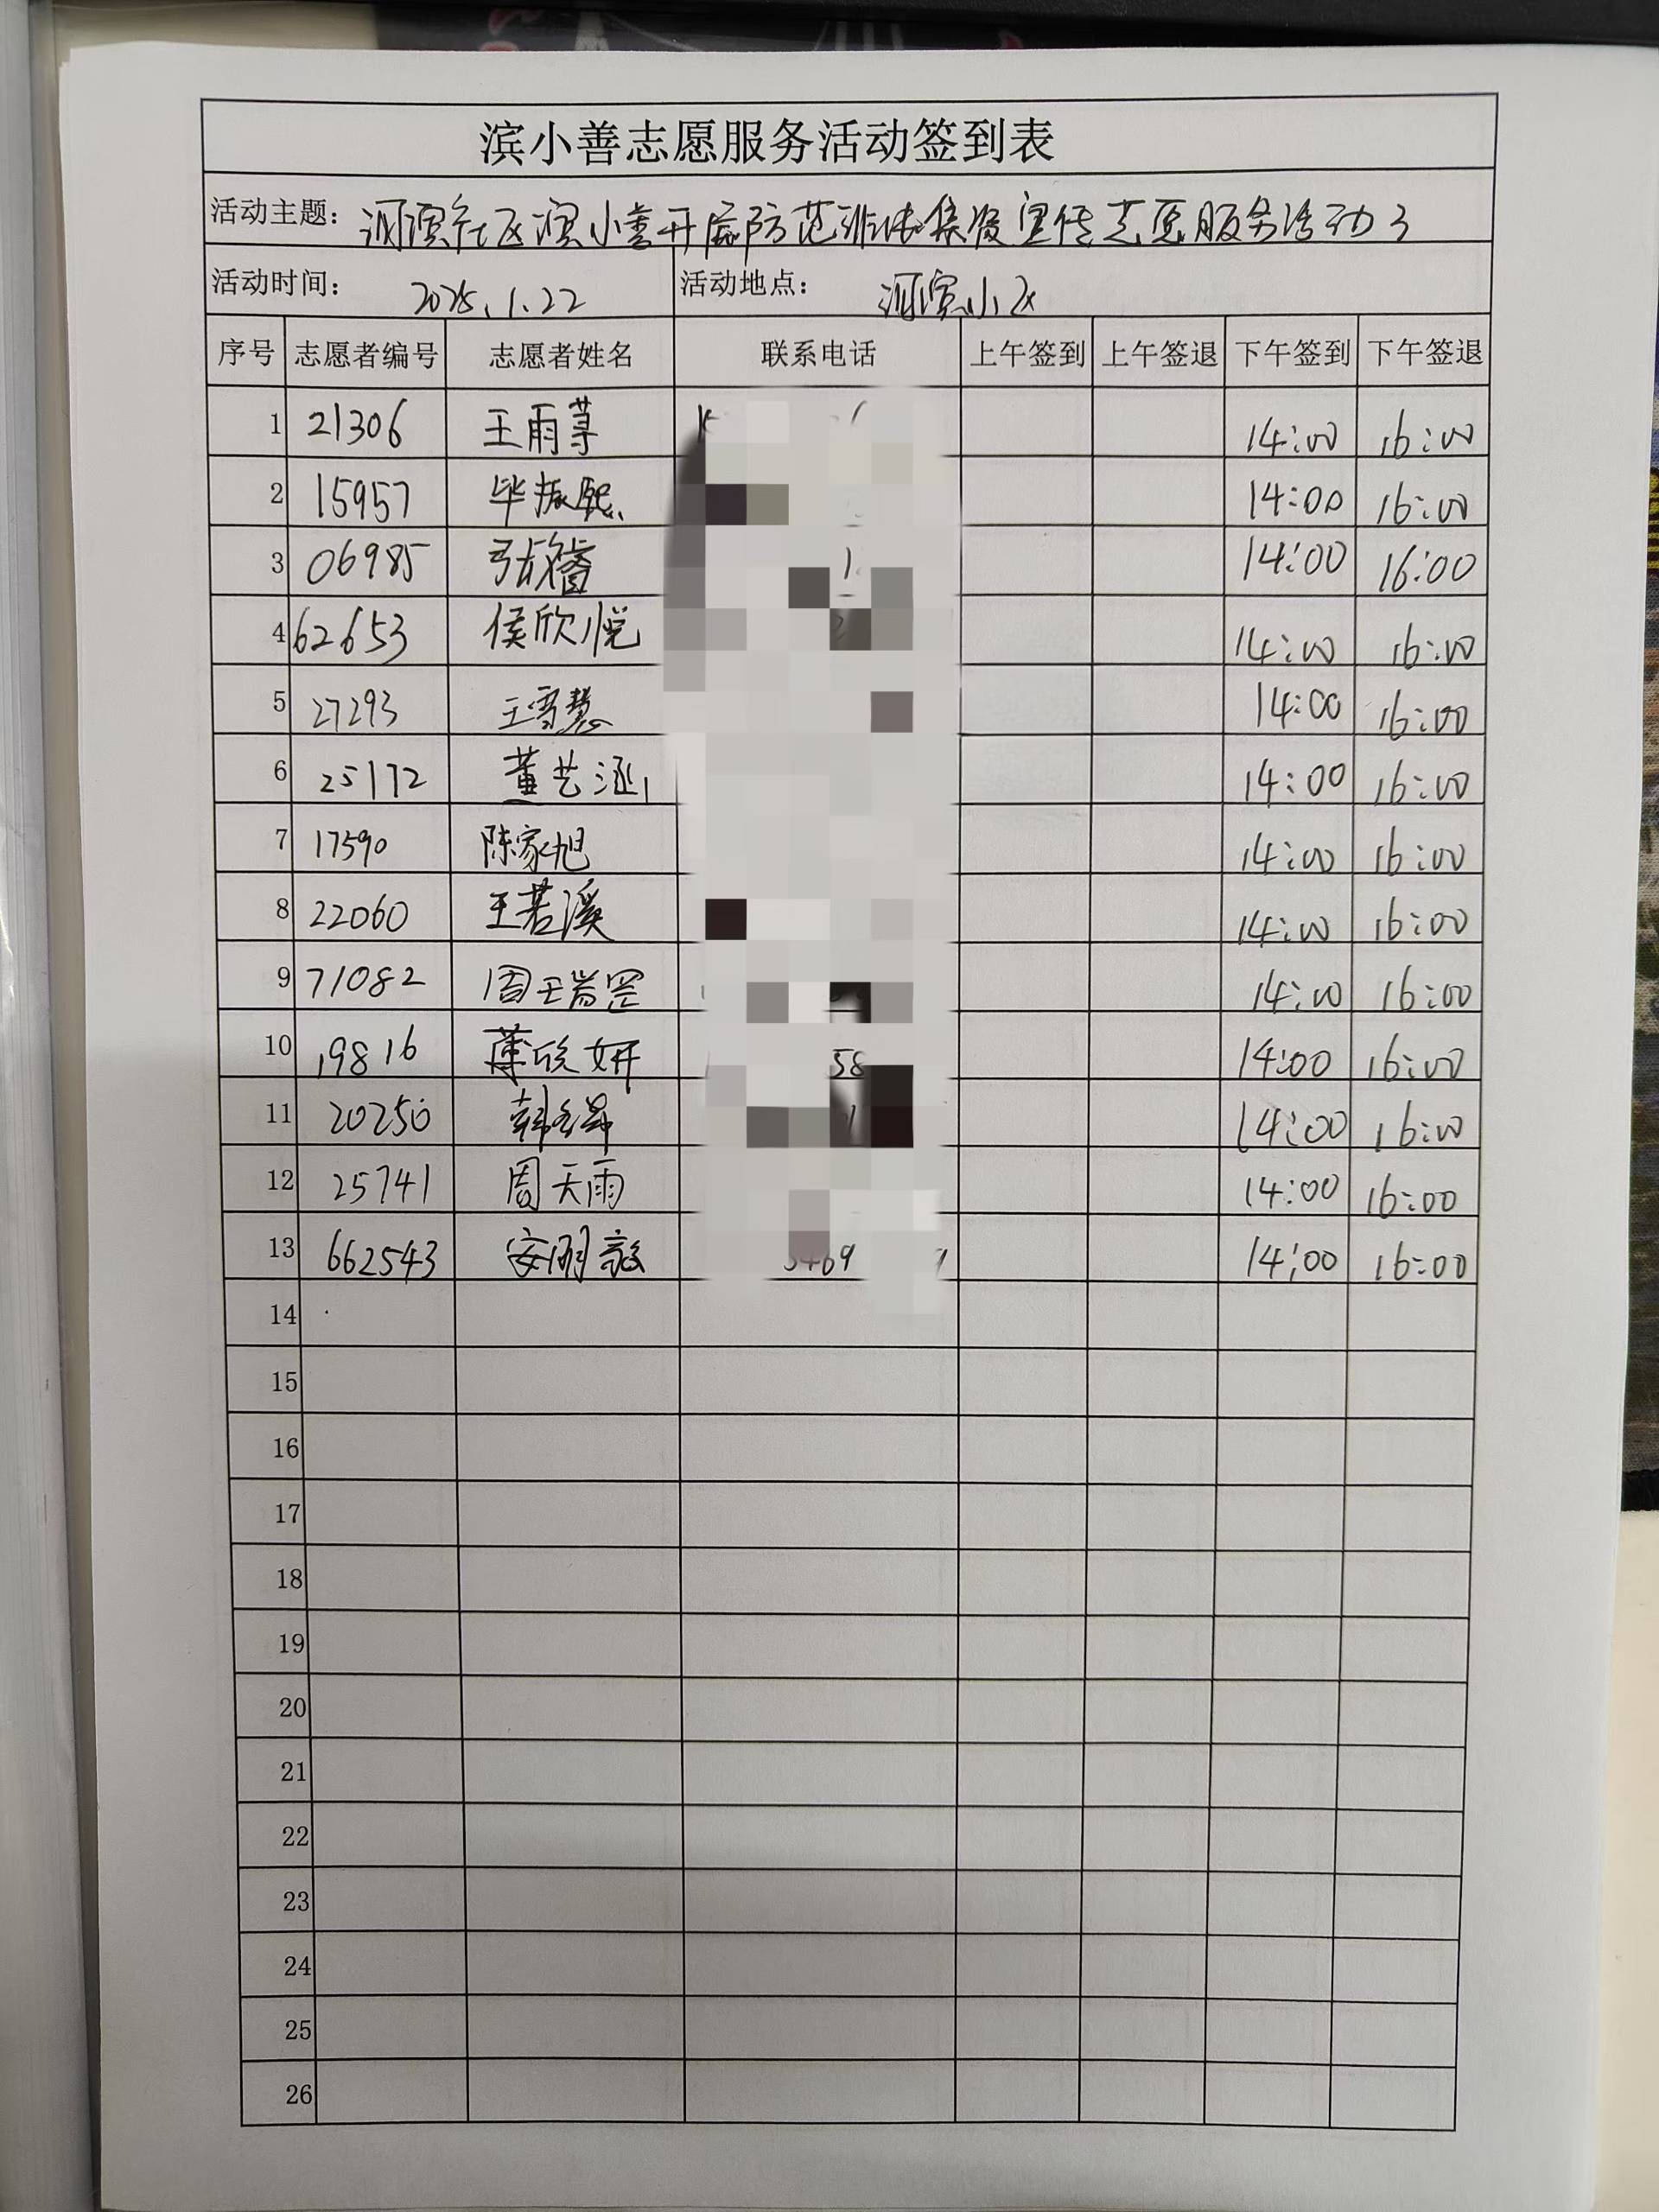 滨小善志愿服务活动签到表
活动主题：河滨社区滨小善开展防范非法集资宣传志愿服务活动3
活动时间：2025.1.22 活动地点：河滨小区
序号 志愿者编号 志愿者姓名 联系电话 上午签到 上午签退 下午签到 下午签退
1 21306 王雨荨 14:00 16:00
2 15957 毕振熙 14:00 16:00
3 06985 张睿 14:00 16:00
4 62653 侯欣悦 14:00 16:00
5 27293 王雪慧 14:00 16:00
6 25172 董艺涵 14:00 16:00
7 17590 陈家旭 14:00 16:00
8 22060 王若溪 14:00 16:00
9 71082 周玉瑞罡 14:00 16:00
10 19816 薄欣妍 58 14:00 16:00
11 20250 14:00 16:00
12 25741 周天雨 14:00 16:00
13 662543 14:00 16:00
14
15
16
17
18
19
20
21
22
23
24
25
26